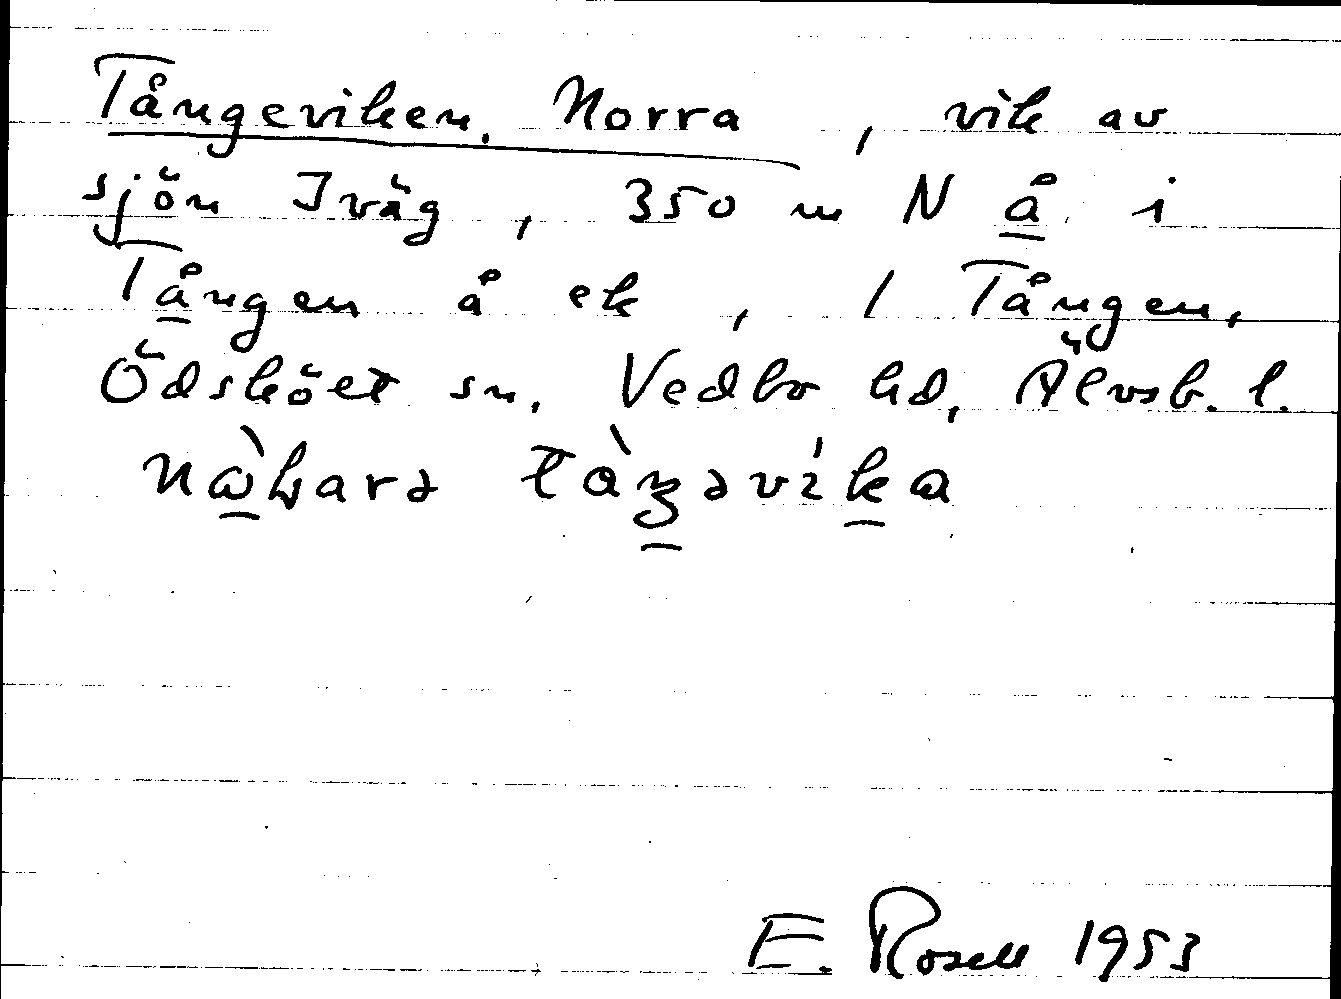 Tångeviken, Norra , vik av
sjön Iväg , 350 m N å i
Tången å ek , 1 Tången,
Ödsköet sn, Vedbo hd, Älvsb. l.
E. Rosell 1953